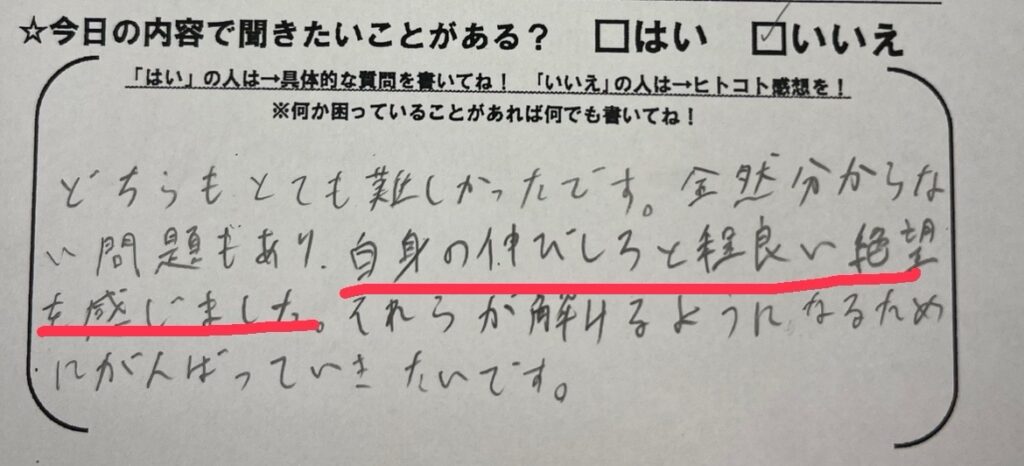 ☆今日の内容で聞きたいことがある？ □はい ☑いいえ
「はい」の人は→具体的な質問を書いてね！ 「いいえ」の人は→ヒトコト感想を！
※何か困っていることがあれば何でも書いてね！
どちらもとても難しかったです。全然分からな
い問題もあり、自身の伸びしろと程良い絶望
を感じました。それらが解けるようになるため
にがんばっていきたいです。